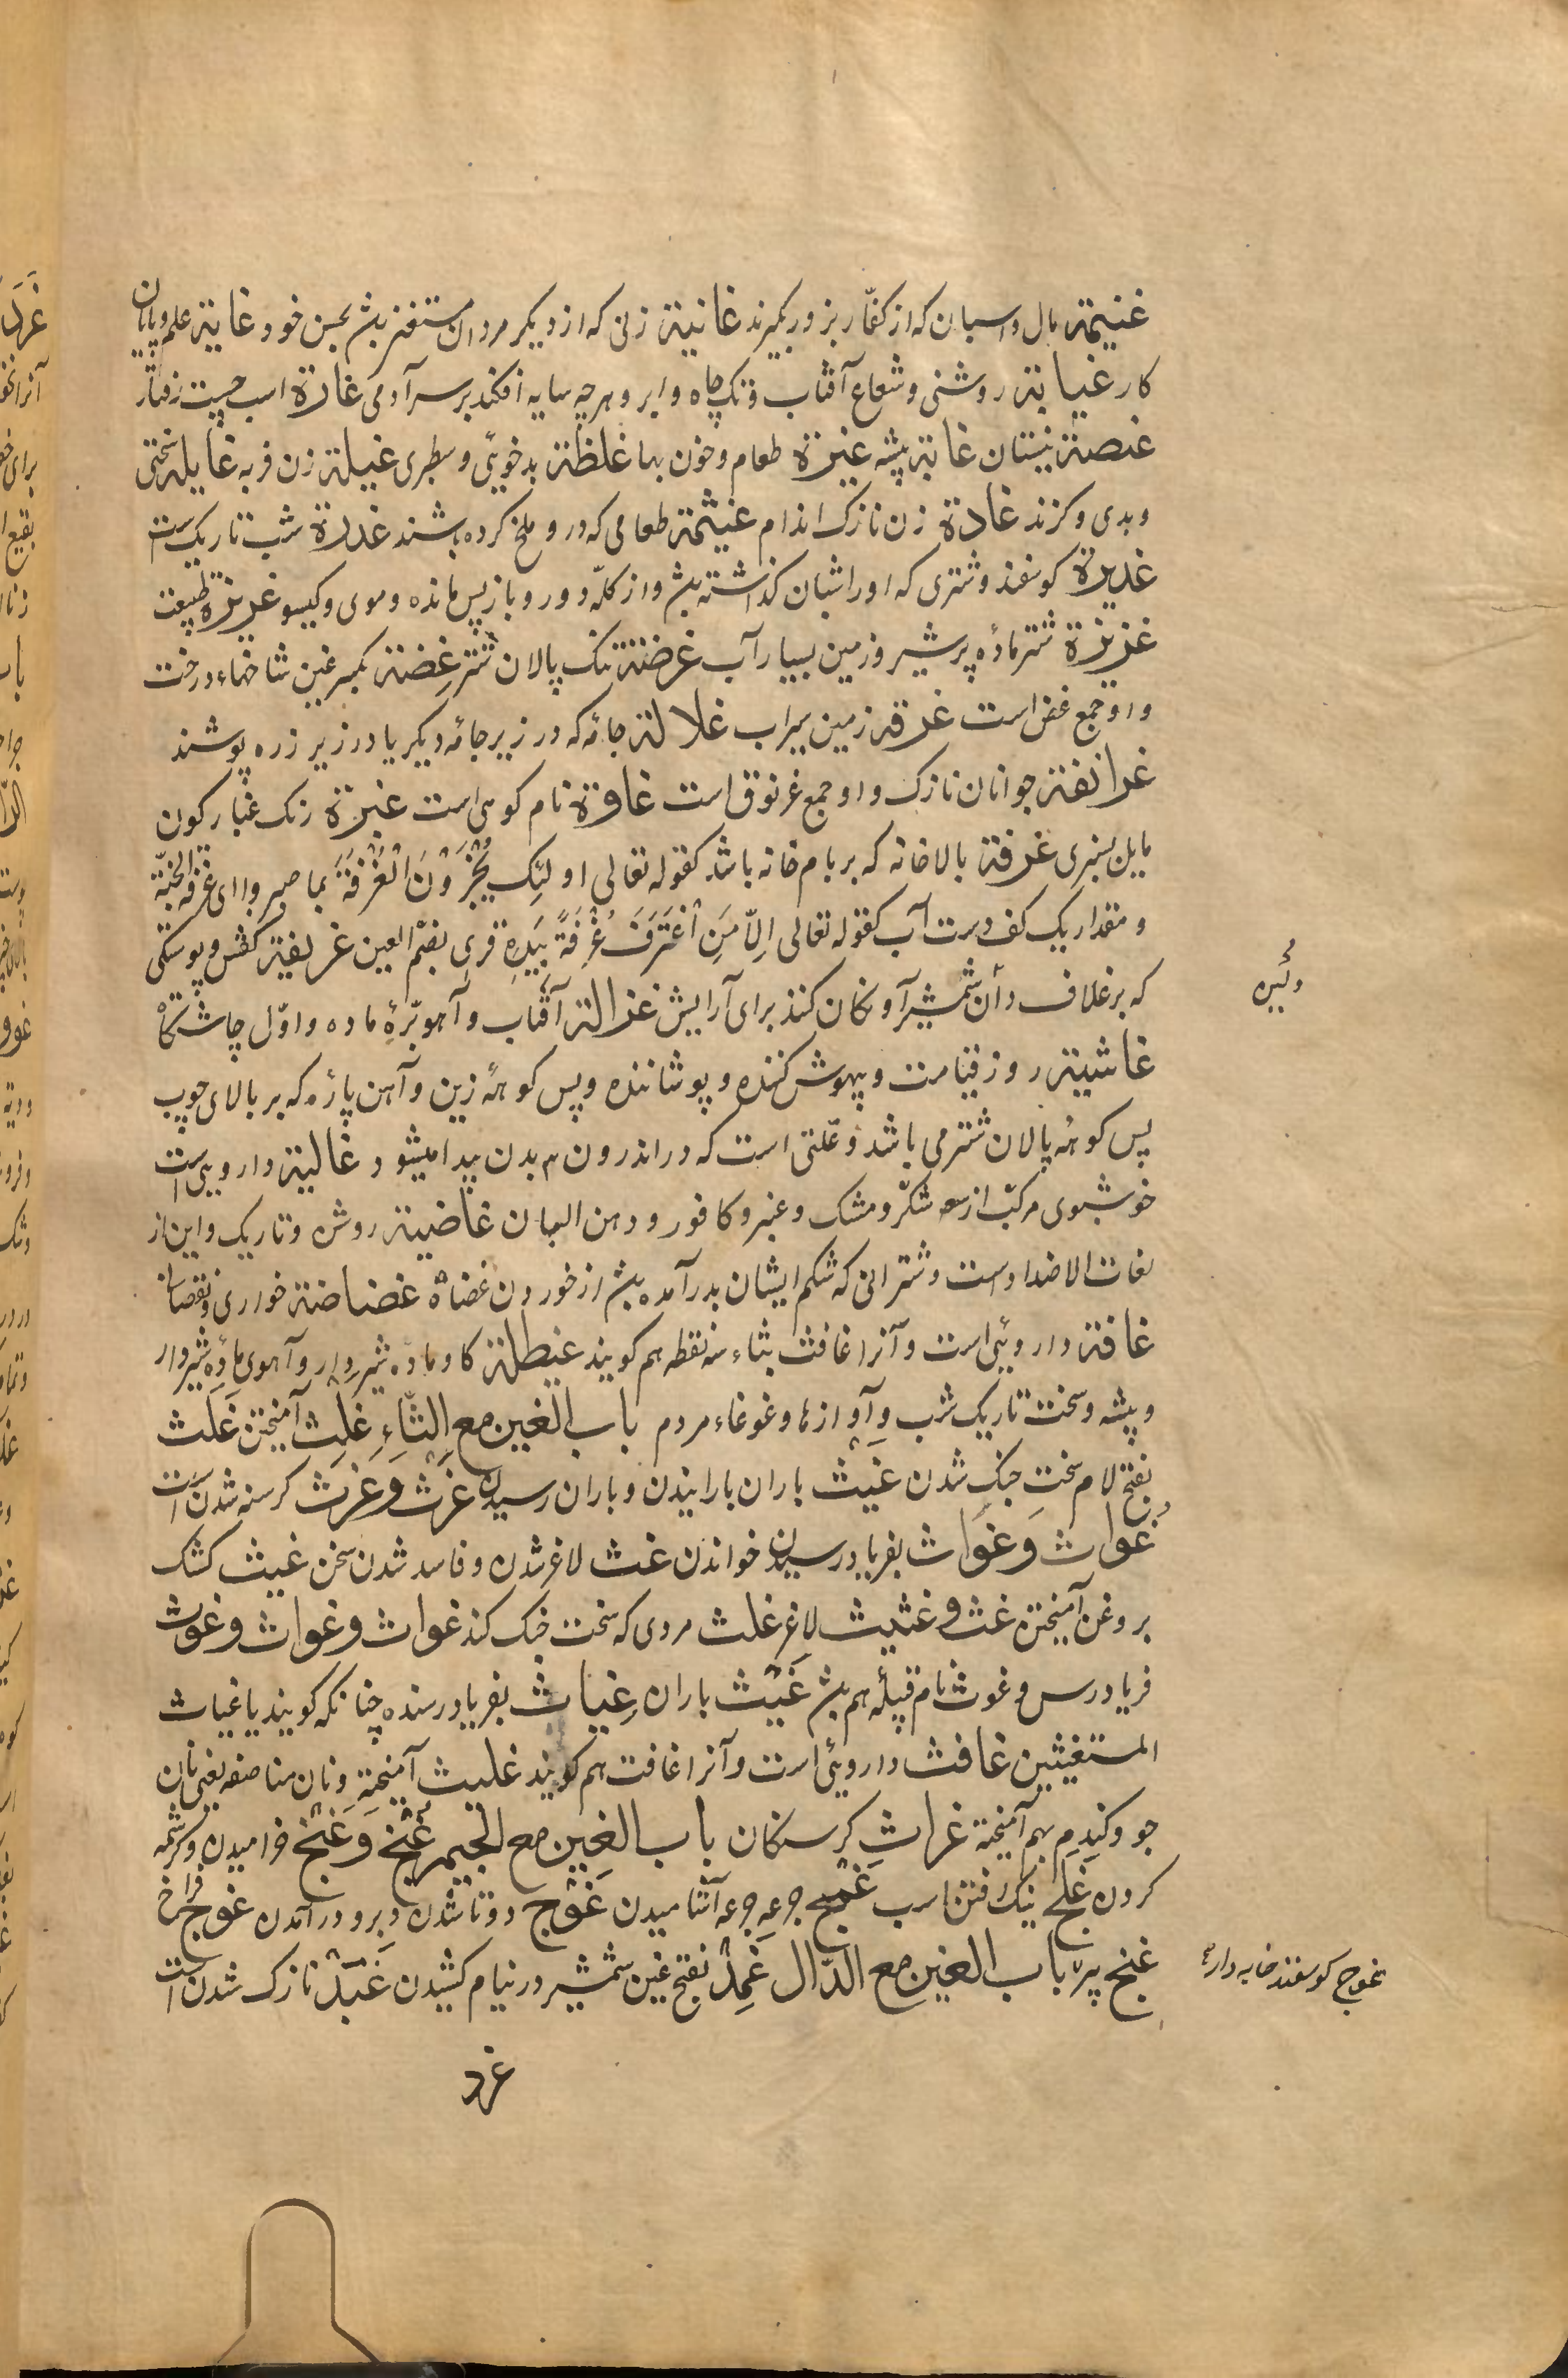 غنیمة مال و اسبان که از کفّار بزور بگیرند غانیة زنی که از دیگر مردان مستغنی بش بحسن خود غایة علم و پایان
کار غیایة روشنی و شعاع آفتاب و تک چاه و ابر و هرچه سایه افکند بر سر آدمی غارة اسب چست رفتار
غیضة نیستان غابة بیشه غیرة طعام و خون بها غلظة بدخویی و سطبری غیلة زن فربه غایله سختی
و بدی و گزند غادة زن نازک اندام غثیمة طعامی که درو ملخ کرده باشند غدرة شب تاریک است
غدیرة کوسفند و شتری که او را شبان کذاشته بش و از کلّه دور و باز پس مانده و موی و کیسو غریزة طبیعت
غزیزة شتر مادهٔ پر شیر و زمین بسیار آب غرضة تنک پالان شتر غضة بکسر غین شاخهاء درخت
و او جمع غض است غرقة زمین سیراب غلالة جامٔه که در زیر جامٔه دیکر یا در زیر زره پوشند
غرانقة جوانان نازک و او جمع غرنوق است غاوة نام کوهی است غبرة رنک غبار کون
مایل بسبزی غرفة بالاخانه که بر بام خانه باشد کقوله تعالی اولئک یُجْزَوْنَ الْغُرْفَةَ بما صبروا ای غرفة الجنّة
و مقدار یک کف دست آب کقوله تعالی اِلّا مَنِ اغْتَرَفَ غُرْفَةً بِیَدِهِ قری بضمّ الغین غریفة کفش و پوستکی
که بر غلاف دان شمشیر آونکان کنند برای آرایش غزالة آفتاب و آهو برّهٔ ماده و اوّل چاشتکاه
غاشیة روز قیامت و بیهوش کننده و پوشاننده و پس کوههٔ زین و آهن پارٔه که بر بالای چوب
پس کوههٔ پالان شتر می باشد و علّتی است که در اندرون بدن پیدا میشود غالیة دارویی است
خوشبوی مرکّب از شکّر و مشک و عنبر و کافور و دهن البان غاضیة روشن و تاریک و این از
لغات الاضداد است و شترانی که شکم ایشان بدرد آمده بش از خوردن غضاة غضاضة خواری و نقصان
غافة دارویی است و آنرا غافث بثاء سه نقطه هم کویند غیطلة کاو ماده شیردار و آهوی مادهٔ شیردار
و بیشه و سخت تاریک شب و آوازها و غوغاء مردم باب الغین مع الثّاءِ غلث آمیختن غَلَث
بفتح لام سخت جنک شدن غیث باران بارانیدن و باران رسیدن غَرَث و غرث کرسنه شدن است
غُواث و غَواث بفریاد رسیدن خواندن غث لاغر شدن و فاسد شدن سخن غیث کشک
بروغن آمیختن غث و غثیث لاغر غلث مردی که سخت جنک کند غواث و غواث و غوث
فریادرس و غوث نام قبیلٔه هم بش غَیْث باران غِیاث بفریاد رسنده چنانکه کویند یا غیاث
المستغیثین غافث دارویی است و آنرا غافت هم کویند غلیث آمیخته و نان مناصفه یعنی نان
جو و کندم بهم آمیخته غراث کرسنکان باب الغین مع الجیم غُنْج و غَنْج خرامیدن و کرشمه
کردن غلج نیک رفتن اسب غمج جرعه جرعه آشامیدن غَوْج دوتا شدن و برو درآمدن غوج فراخ
غنج پیر باب الغین مع الدّال غَمْدٌ بفتح غین شمشیر در نیام کشیدن غَیَدٌ نازک شدن است
غرد
و غیره
غوج کوسفند خایه دارٔ